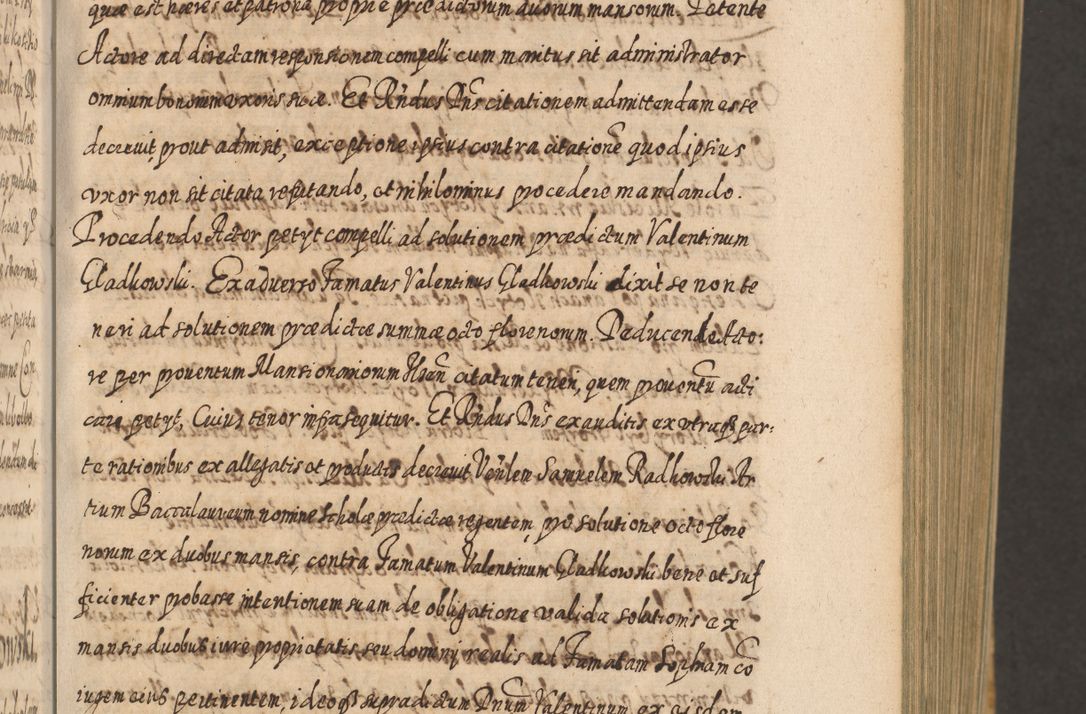 quæ est hæres et patrona propriè prædictorum duorum mansorum. Petente
Actore ad directam responsionem compelli cum maritus sit administrator
omnium bonorum uxoris suæ. Et Rndus Dns citationem admittendam esse
decrevit, prout admisit, exceptione ipsius contra citationē quod ipsius
vxor non sit citata refutando, et nihilominus procedere mandando.
Procedendo Actor petyt compelli ad solutionem prædictum Valentinum
Gladkowski. Ex adverso Famatus Valentinus Gladkowski dixit se non te
neri ad solutionem prædictæ summæ octo florenorum. Deducende Acto:
re per proventum Mansionariorum citatum teneri, quem proventū
care petyt, Cuius tenor infra sequitur. Et Rndus Dns exauditis ex utraq par:
te rationibus ex allegatis et productis decrevit Vēnlem Samuelem Radkowski Ar
tium Baccalaureum nomine Scholæ prædictæ regentem, pro solutione octo flore
norum ex duobus mansis, contra Famatum Valentinum Gladkowski bene et suf
ficienter probasse intentionem suam de obligatione valida solutionis ex
mansis duobus iure proprietatis seu dominij realis ad Famatam Sophiam cō
iugem eius pertinentem, ideoq supradictum Dnum Valentinum ex eisdem